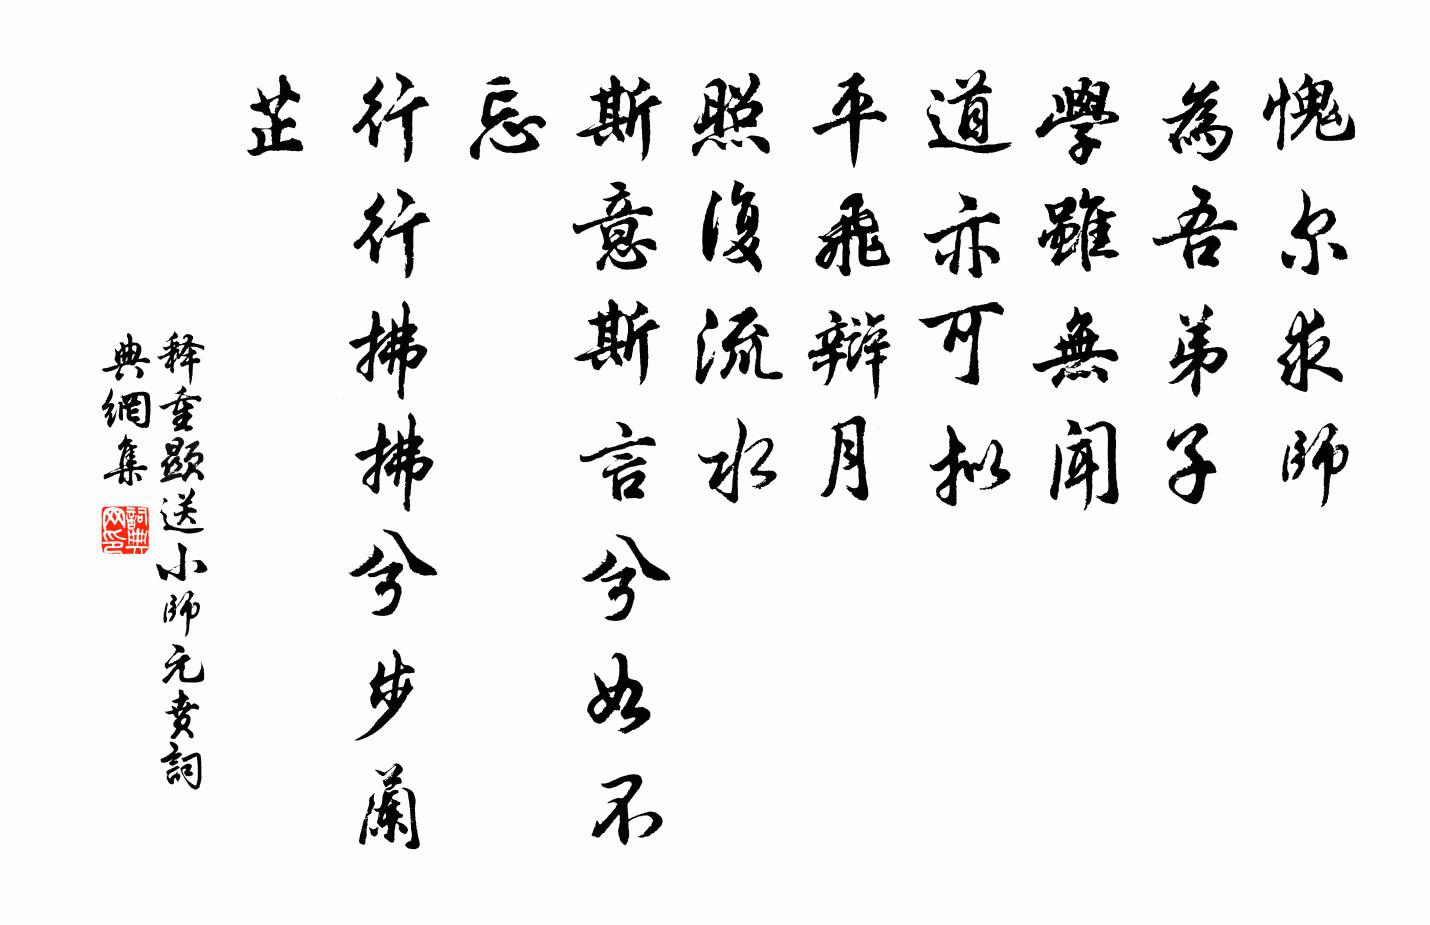 愧尔求師
為吾弟子
學雖無聞
道亦可拟
平飛辯月
照復流水
斯意斯言兮如不
忘
行行拂拂兮步蘭
芷
释重顯送小師元賁詞
典網集
詞典
网印